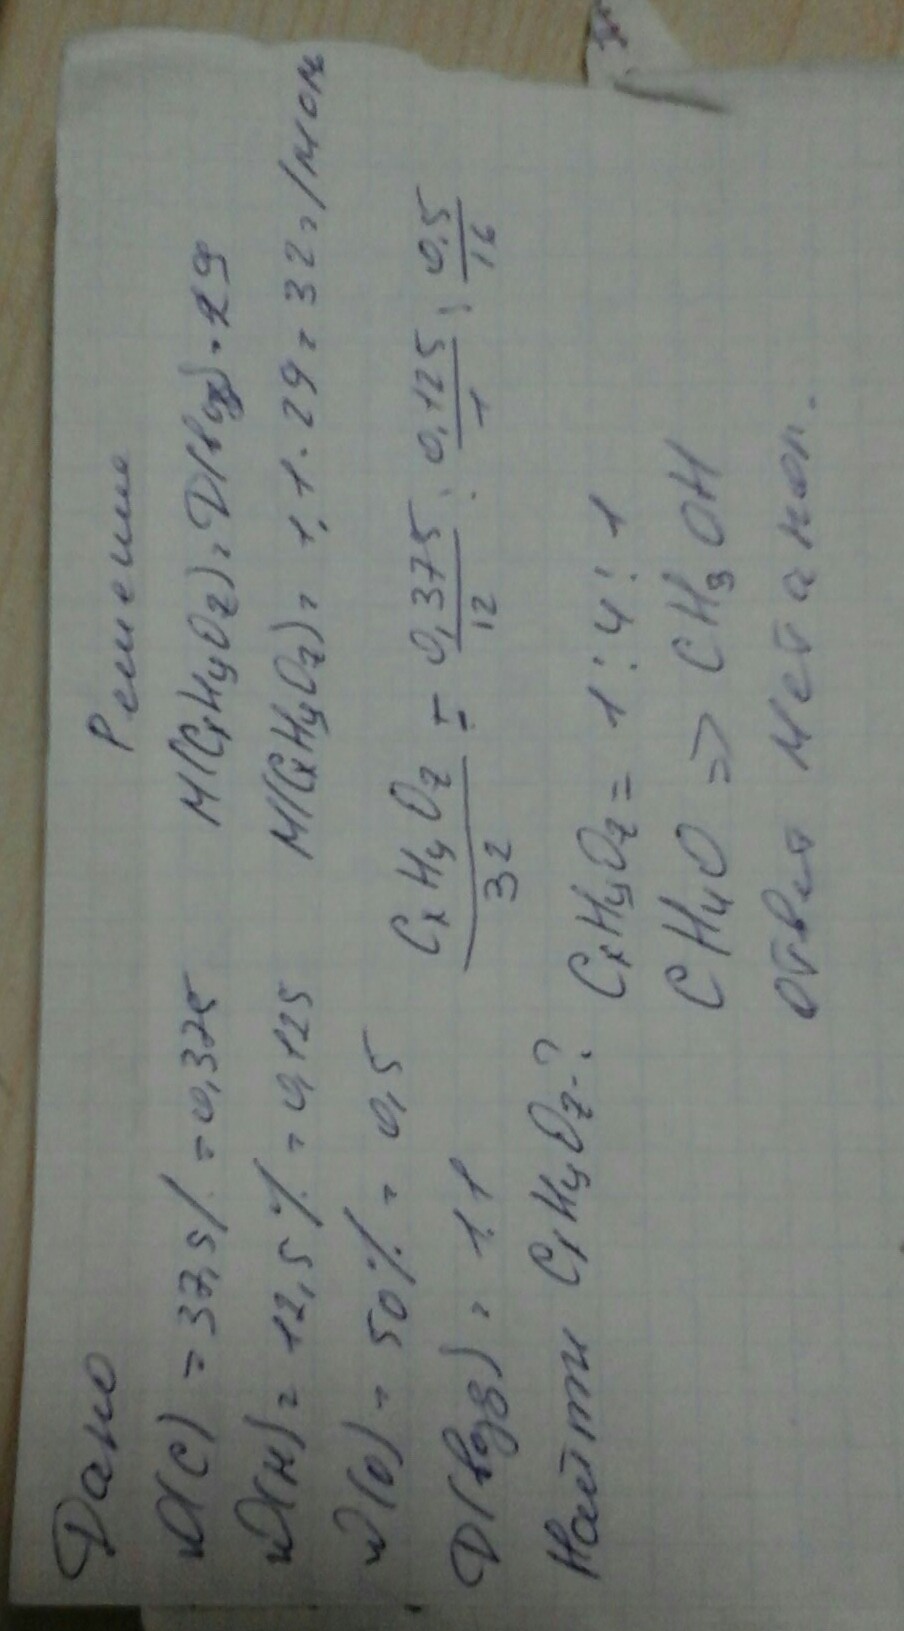 Дано
W(C) = 37,5% = 0,375
W(H) = 12,5% = 0,125
W(O) = 50% = 0,5
D(возд) = 1.1
Найти CxHyOz-?
Решение
M(CxHyOz) = D(возд) · 29
M(CxHyOz) = 1,1 · 29 = 32 г/моль
CxHyOz / 32 = 0,375/12 : 0,125/1 : 0,5/16
CxHyOz = 1 : 4 : 1
CH4O => CH3OH
Ответ метанол.